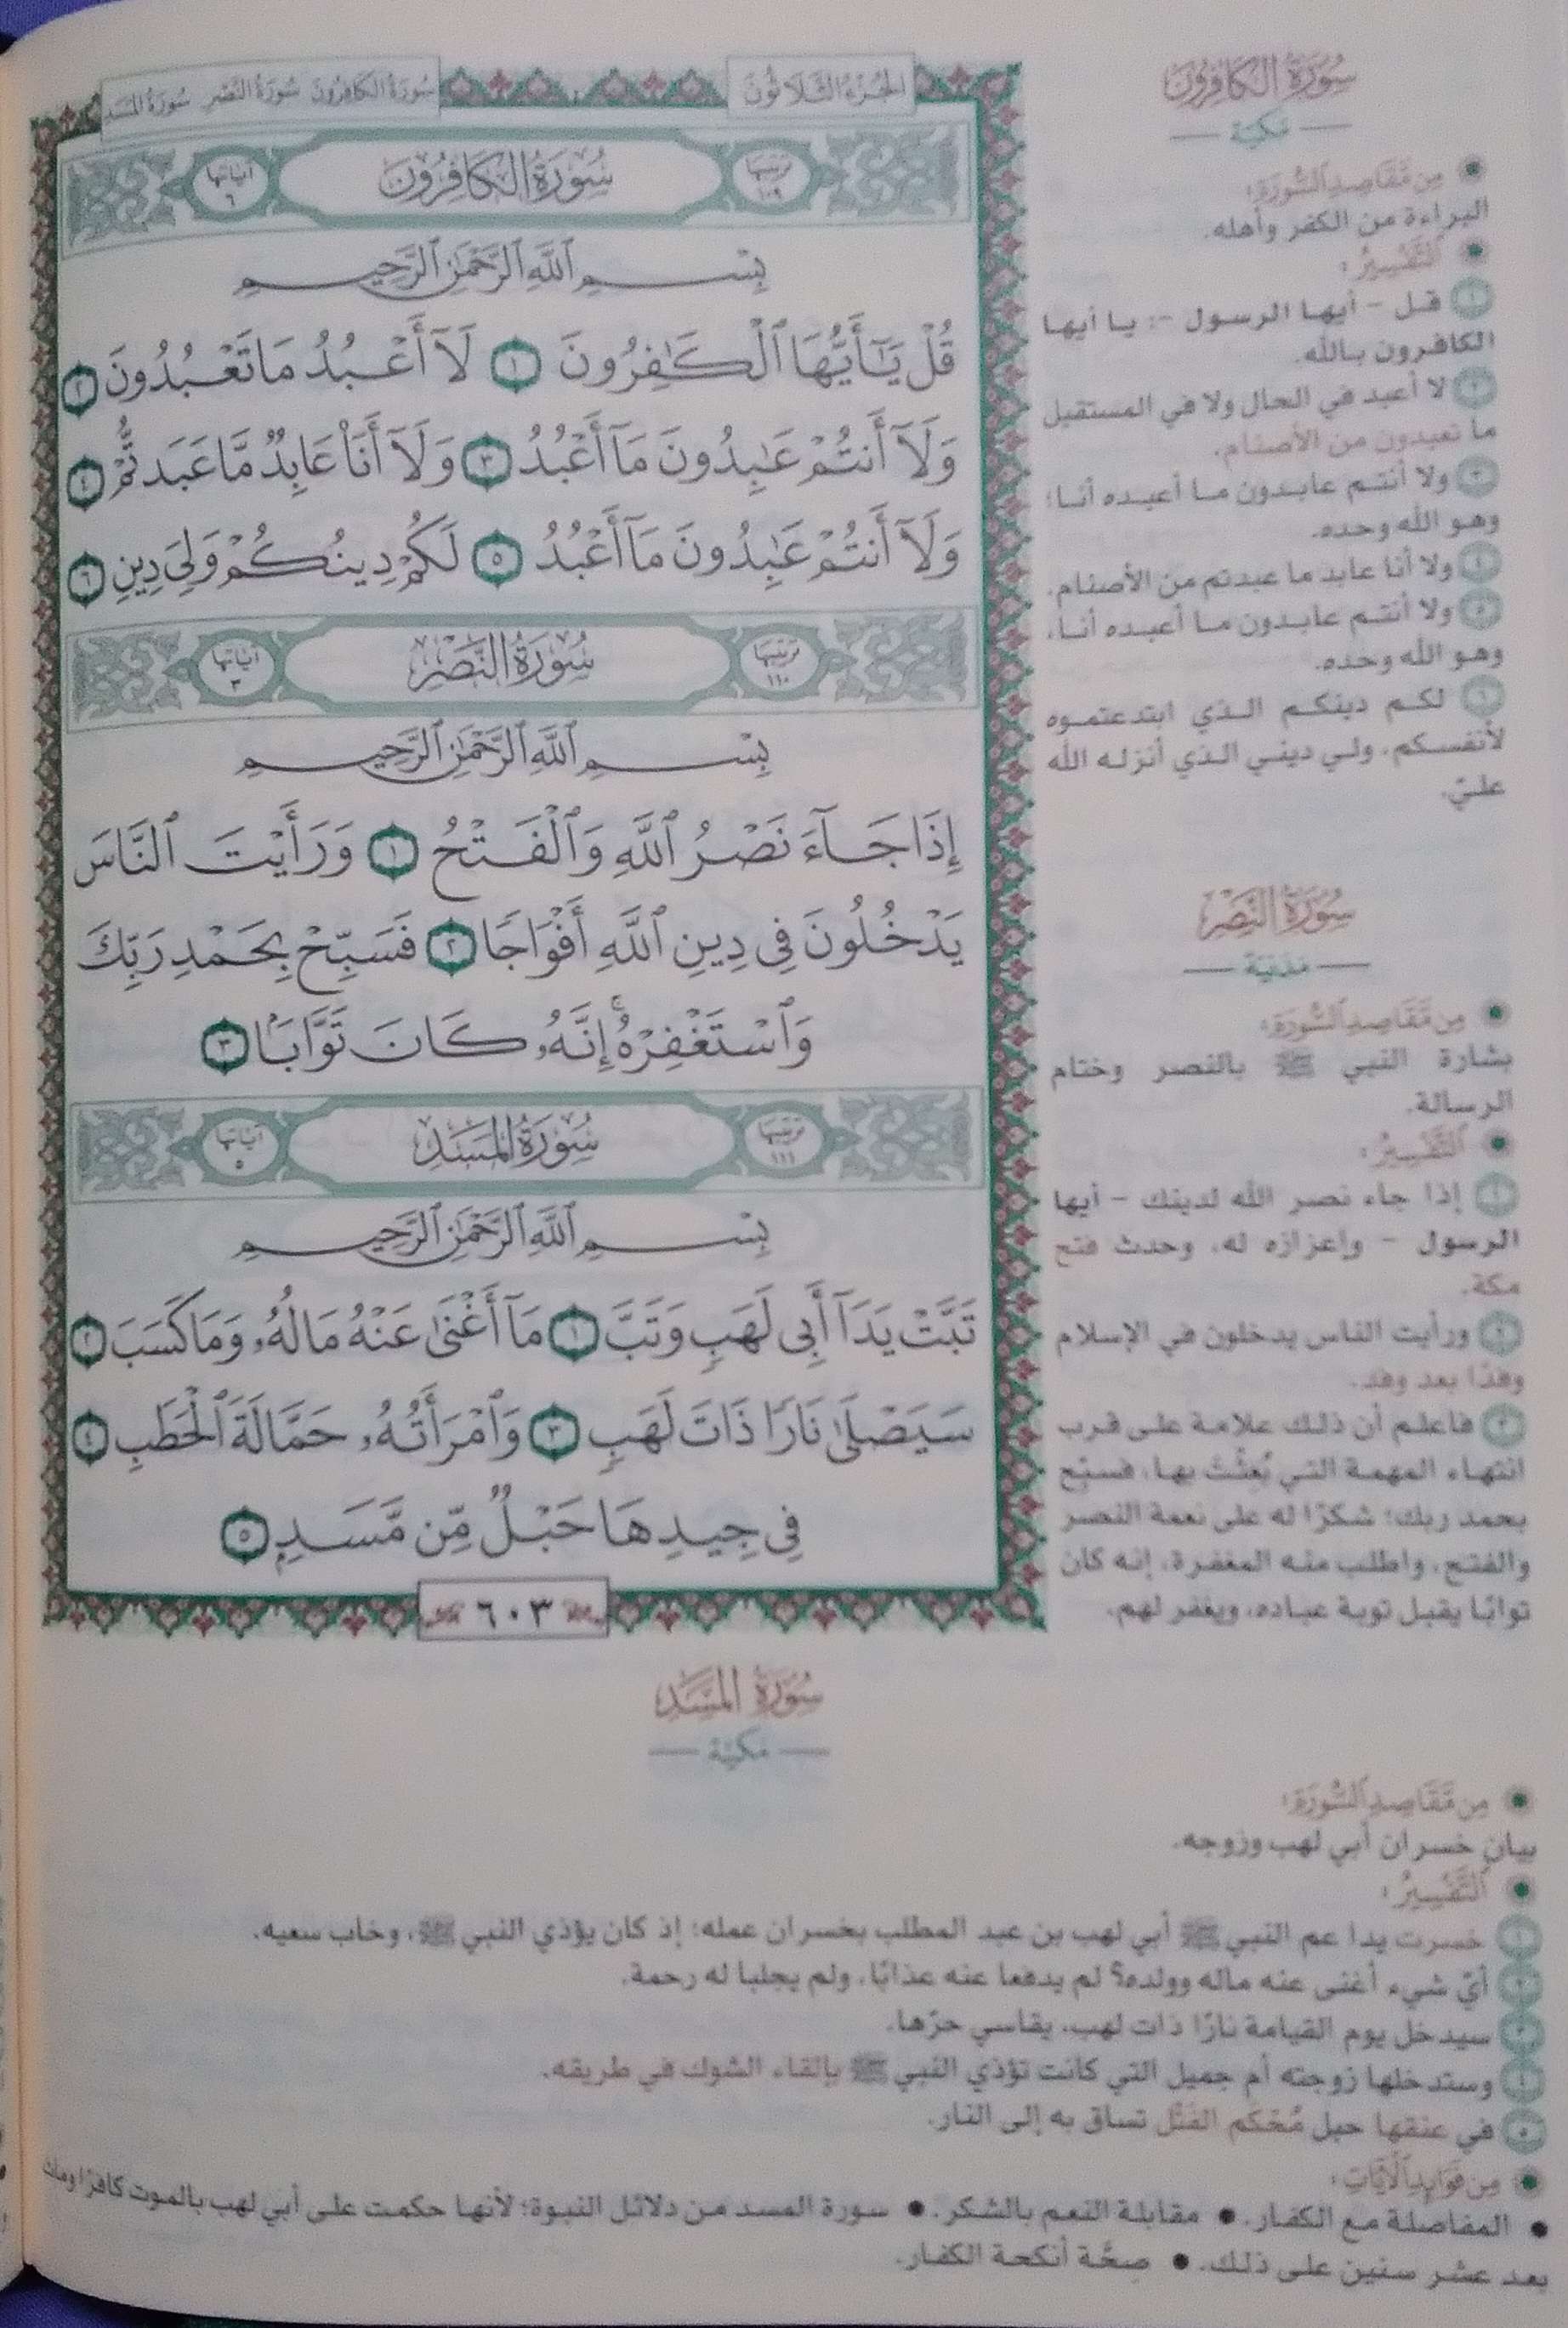 الجُزْءُ الثَّلَاثُونَ
سُورَةُ الكَافِرُونَ سُورَةُ النَّصْرِ سُورَةُ المَسَدِ
ترتيبها ١٠٩
سُورَةُ الكَافِرُونَ
آياتها ٦
بِسْمِ ٱللَّهِ ٱلرَّحْمَٰنِ ٱلرَّحِيمِ
قُلْ يَٰٓأَيُّهَا ٱلْكَٰفِرُونَ ١ لَآ أَعْبُدُ مَا تَعْبُدُونَ ٢
وَلَآ أَنتُمْ عَٰبِدُونَ مَآ أَعْبُدُ ٣ وَلَآ أَنَا۠ عَابِدٌ مَّا عَبَدتُّمْ ٤
وَلَآ أَنتُمْ عَٰبِدُونَ مَآ أَعْبُدُ ٥ لَكُمْ دِينُكُمْ وَلِيَ دِينِ ٦
ترتيبها ١١٠
سُورَةُ النَّصْرِ
آياتها ٣
بِسْمِ ٱللَّهِ ٱلرَّحْمَٰنِ ٱلرَّحِيمِ
إِذَا جَآءَ نَصْرُ ٱللَّهِ وَٱلْفَتْحُ ١ وَرَأَيْتَ ٱلنَّاسَ
يَدْخُلُونَ فِي دِينِ ٱللَّهِ أَفْوَاجًا ٢ فَسَبِّحْ بِحَمْدِ رَبِّكَ
وَٱسْتَغْفِرْهُۚ إِنَّهُۥ كَانَ تَوَّابَۢا ٣
ترتيبها ١١١
سُورَةُ المَسَدِ
آياتها ٥
بِسْمِ ٱللَّهِ ٱلرَّحْمَٰنِ ٱلرَّحِيمِ
تَبَّتْ يَدَآ أَبِي لَهَبٖ وَتَبَّ ١ مَآ أَغْنَىٰ عَنْهُ مَالُهُۥ وَمَا كَسَبَ ٢
سَيَصْلَىٰ نَارٗا ذَاتَ لَهَبٖ ٣ وَٱمْرَأَتُهُۥ حَمَّالَةَ ٱلْحَطَبِ ٤
فِي جِيدِهَا حَبْلٞ مِّن مَّسَدِۭ ٥
٦٠٣
سُورَةُ الكَافِرُونَ
مَكِّيَّة
• مِن مَّقَاصِدِ ٱلسُّورَةِ:
البراءة من الكفر وأهله.
• ٱلتَّفْسِيرُ:
١ قل - أيها الرسول -: يا أيها
الكافرون بالله.
٢ لا أعبد في الحال ولا في المستقبل
ما تعبدون من الأصنام.
٣ ولا أنتم عابدون ما أعبده أنا؛
وهو الله وحده.
٤ ولا أنا عابد ما عبدتم من الأصنام.
٥ ولا أنتم عابدون ما أعبده أنا،
وهو الله وحده.
٦ لكم دينكم الذي ابتدعتموه
لأنفسكم، ولي ديني الذي أنزله الله
عليّ.
سُورَةُ النَّصْرِ
مَدَنِيَّة
• مِن مَّقَاصِدِ ٱلسُّورَةِ:
بشارة النبي ﷺ بالنصر وختام
الرسالة.
• ٱلتَّفْسِيرُ:
١ إذا جاء نصر الله لدينك - أيها
الرسول - وإعزازه له، وحدث فتح
مكة.
٢ ورأيت الناس يدخلون في الإسلام
وفدًا بعد وفد.
٣ فاعلم أن ذلك علامة على قرب
انتهاء المهمة التي بُعِثْتَ بها، فسبّح
بحمد ربك؛ شكرًا له على نعمة النصر
والفتح، واطلب منه المغفرة، إنه كان
توابًا يقبل توبة عباده، ويغفر لهم.
سُورَةُ المَسَدِ
مَكِّيَّة
• مِن مَّقَاصِدِ ٱلسُّورَةِ:
بيان خسران أبي لهب وزوجه.
• ٱلتَّفْسِيرُ:
١ خسرت يدا عم النبي ﷺ أبي لهب بن عبد المطلب بخسران عمله؛ إذ كان يؤذي النبي ﷺ، وخاب سعيه.
٢ أيّ شيء أغنى عنه ماله وولده؟ لم يدفعا عنه عذابًا، ولم يجلبا له رحمة.
٣ سيدخل يوم القيامة نارًا ذات لهب، يقاسي حرّها.
٤ وستدخلها زوجته أم جميل التي كانت تؤذي النبي ﷺ بإلقاء الشوك في طريقه.
٥ في عنقها حبل مُحْكَم الفَتْل تساق به إلى النار.
• مِن فَوَائِدِ ٱلْآيَاتِ:
• المفاصلة مع الكفار. • مقابلة النعم بالشكر. • سورة المسد من دلائل النبوة؛ لأنها حكمت على أبي لهب بالموت كافرًا ومات
بعد عشر سنين على ذلك. • صِحَّة أنكحة الكفار.